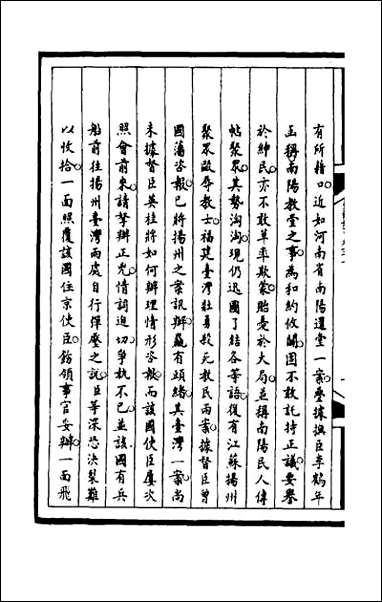 有所藉口近如河南省南陽還堂一案疊據撫臣李鶴年
函稱南陽教堂之事為和約攸關固不敢託持正議要譽
於紳民亦不敢草率欺蒙貽憂於大局並稱南陽民人傳
帖聚眾其勢洶洶現仍退團了結各等語復有江蘇揚州
聚眾毆辱教士福建臺灣壯勇毆死教民兩案據督臣曾
國藩咨報已將揚州之案訊辦麤有頭緒其臺灣一案尚
未據督臣英桂將如何辦理情形咨報而該國使臣屢次
照會前來請拏辦正兇情詞迫切爭執不已並該國有兵
船前往揚州臺灣兩處自行彈壓之說臣等深恐決裂難
以收拾一面照覆該國住京使臣飭領事官妥辦一面飛